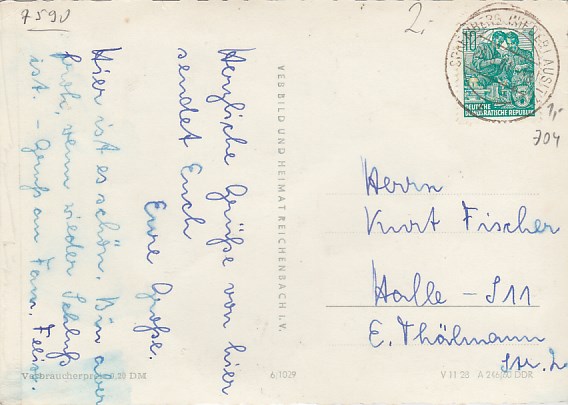 7590
2,-
Herzliche Grüße von hier
sendet Euch
Eure Große.
Hier ist es schön. Bin aber
froh, wenn wieder Schluß
ist. – Gruß an Fam. Felix.
VEB BILD UND HEIMAT REICHENBACH I. V.
10
DEUTSCHE
DEMOKRATISCHE REPUBLIK
SPREMBERG (NIEDERLAUSITZ)
1,-
704
Herrn
Kurt Fischer
Halle - S 11
E. Thälmann
Str. 2
Verbraucherpreis 0,20 DM
6/1029
V 11 28 A 2/60 DDR